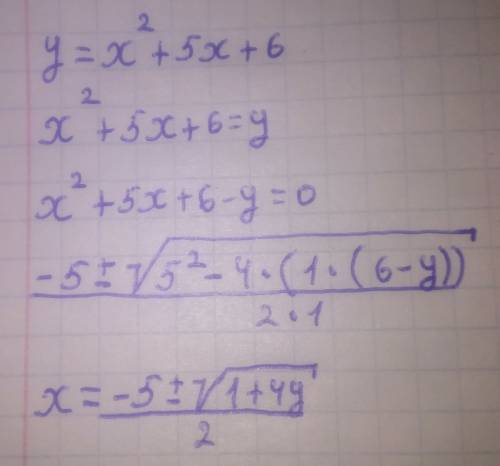 y = x² + 5x + 6
x² + 5x + 6 = y
x² + 5x + 6 - y = 0
-5 ± √5² - 4 · (1 · (6 - y))
2 · 1
x = -5 ± √1 + 4y
2